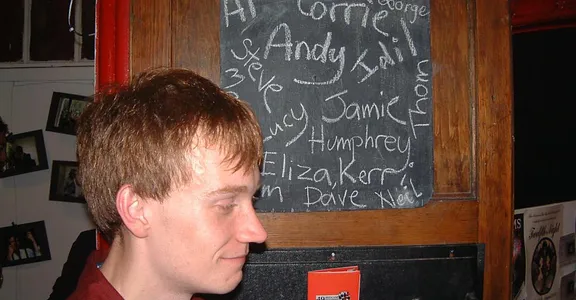 Al Corrie George
Andy Idil
Steve
Lucy Jamie Thom
Humphrey
Eliza, Kerr
Dave Neil